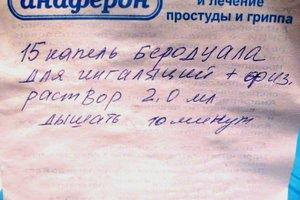 анаферон
и лечение
простуды и гриппа
15 капель беродуала
для ингаляций + физ.
раствор 2,0 мл
дышать 10 минут